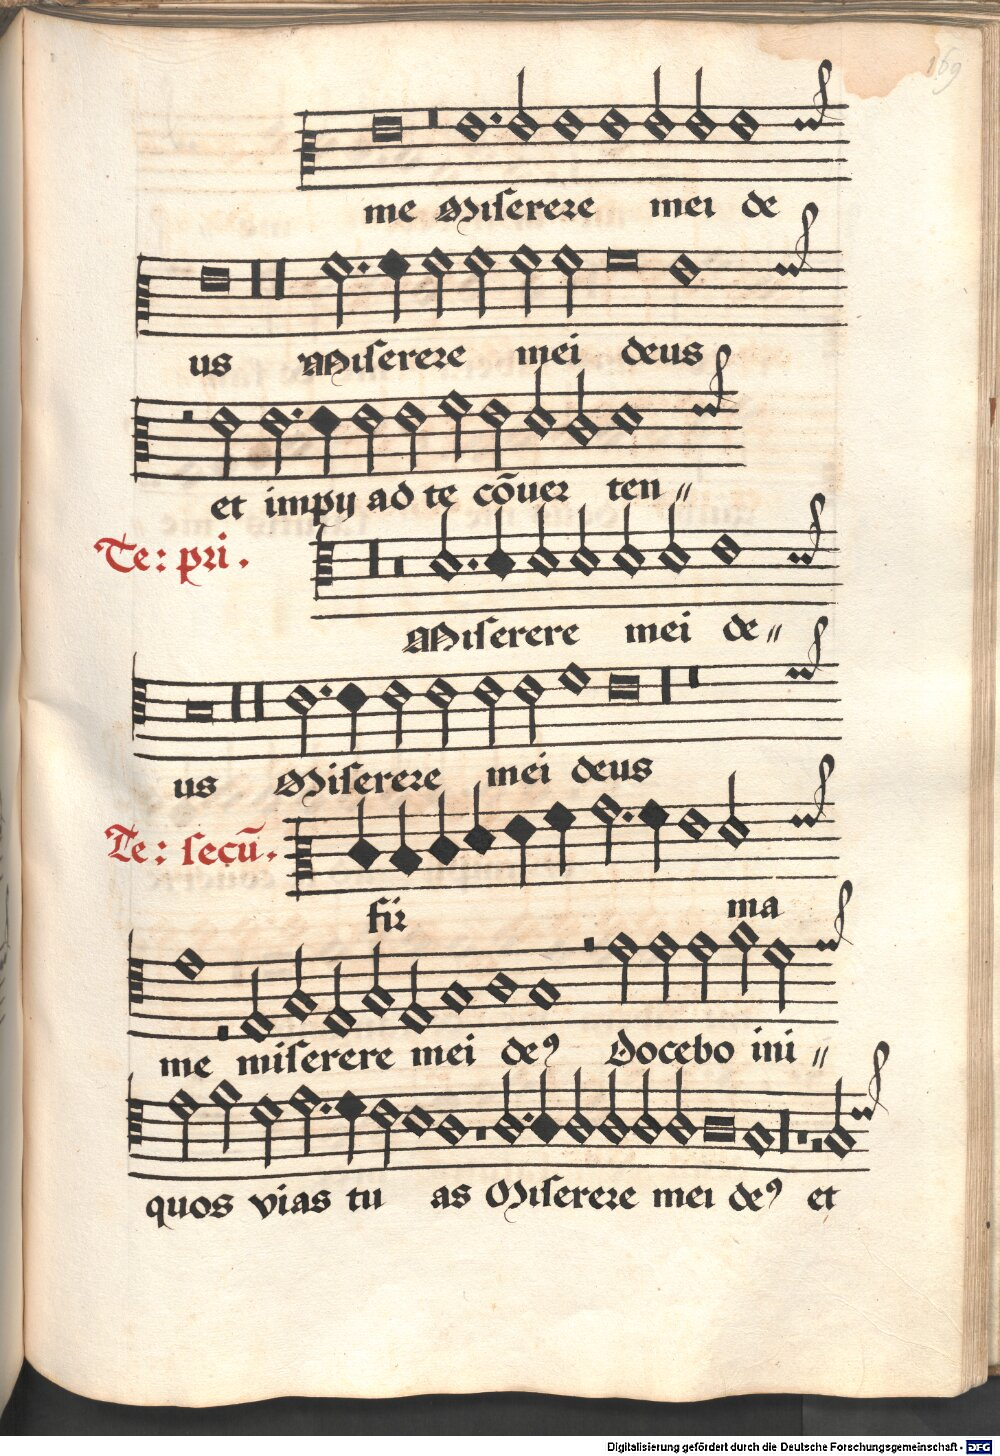 169
me Miserere mei de
us Miserere mei deus
et impij ad te cõuer ten〃
Te: pri.
Miserere mei de〃
us Miserere mei deus
Te: secũ.
fir ma
me miserere mei deꝰ Docebo ini〃
quos vias tu as Miserere mei deꝰ et
Digitalisierung gefördert durch die Deutsche Forschungsgemeinschaft - DFG